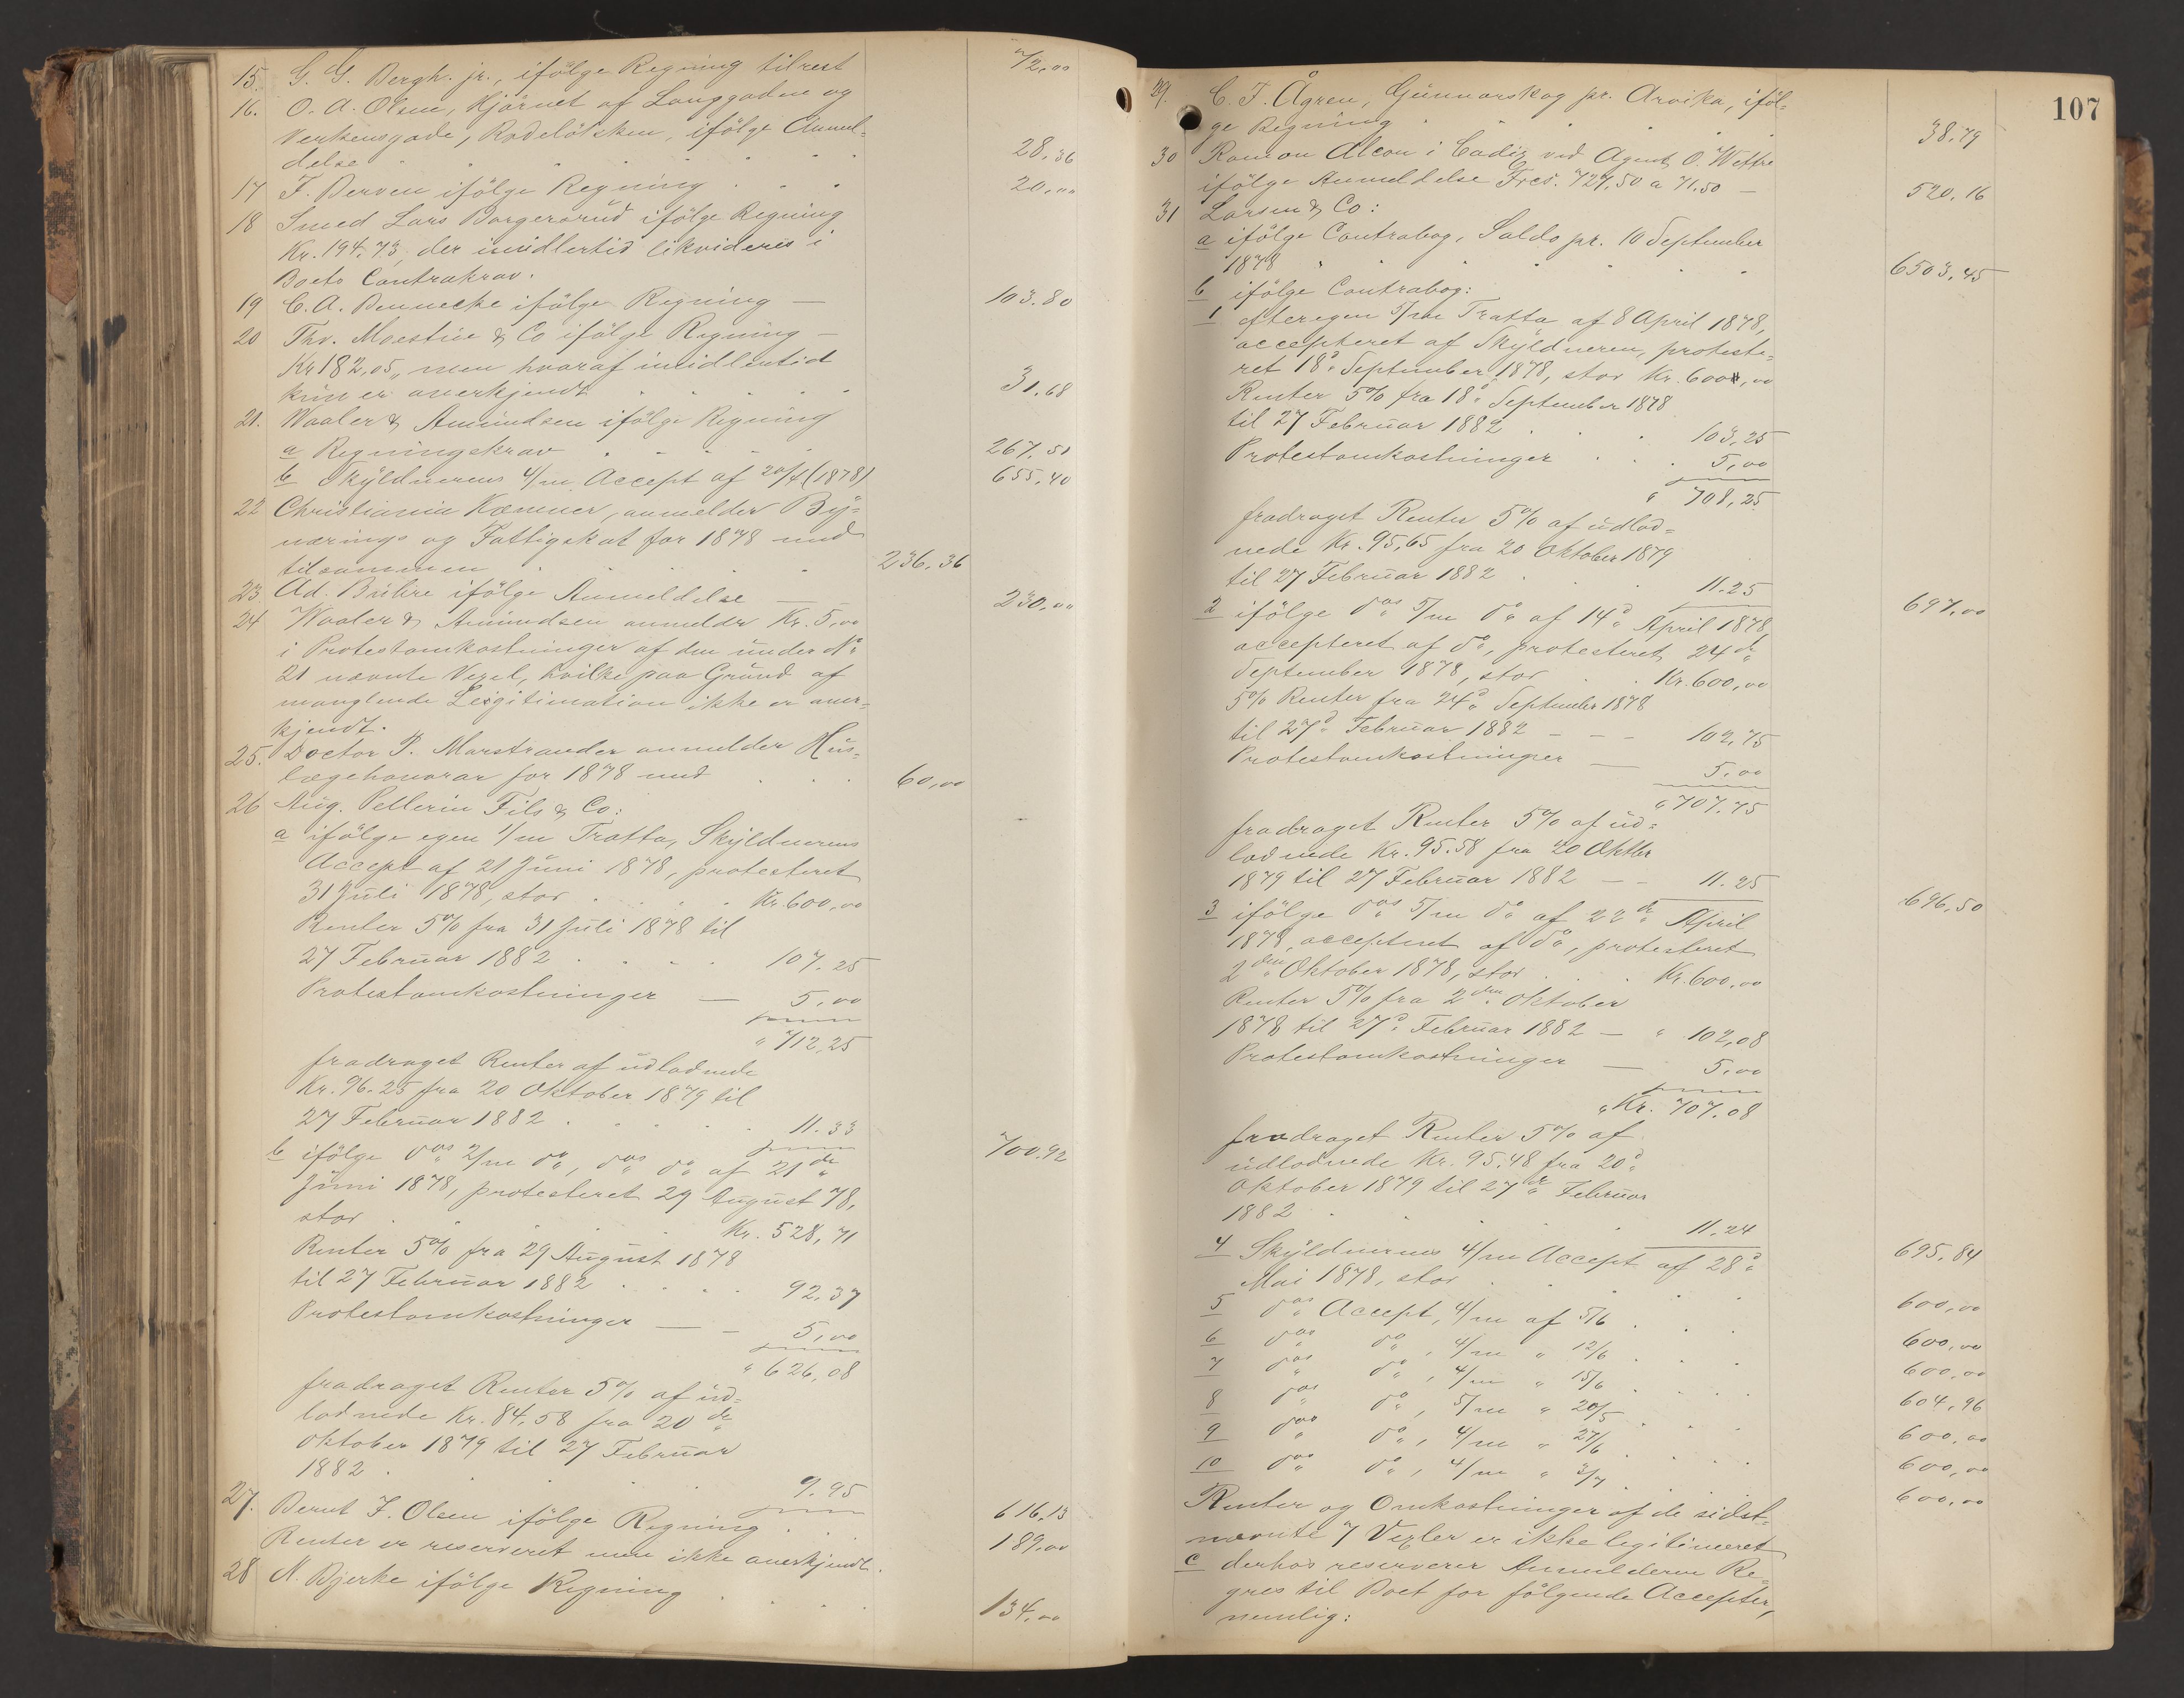 15. G. G. Bergh. jr., ifølge Regning tilrest 72,00
16. O. A. Olsen, Hjørnet af Langgaden og
Verkensgade, Rodeløkken, ifølge Anmel-
delse 28,36
17 F. Berven ifølge Regning 20,00
18 Smed Lars Borgersrud ifølge Regning
Kr. 194.73, der imidlertid likvideres i
Boets Contrakrav.
19 C. A. Bennecke ifølge Regning — 103.80
20 Thv. Moestue & Co ifølge Regning —
Kr 182,05, men hvoraf imidlertid
kun er anerkjendt 31.68
21. Waaler & Amundsen ifølge Regning
a Regningskrav 267.51
b Skyldnerens 4/m Accept af 20/4 (1878) 655.40
22 Christiania Kæmner, anmelder By-
nærings og Fattigskat for 1878 med
tilsammen 236.36
23. Ad. Bülire ifølge Anmeldelse — 230,00
24 Waaler & Amundsen anmelder Kr. 5,00
i Protestomkostninger af den under No
21 nævnte Vexel, hvilke paa Grund af
manglende Legitimation ikke er aner-
kjendt.
25. Doctor P. Marstrander anmelder Hus-
lægehonorar for 1878 med 60,00
26 Aug. Pellerin Fils & Co:
a ifølge egen 1/m Tratta, Skyldnerens
Accept af 21 Juni 1878, protesteret
31 Juli 1878, stor Kr. 600,00
Renter 5% fra 31 Juli 1878 til
27 Februar 1882 107.25
Protestomkostninger — 5,00
" 712,25
fradraget Renter af udlodnede
Kr. 96.25 fra 20 Oktober 1879 til
27 Februar 1882 11.33
700.92
b ifølge dos 2/m do, dos do af 21de
Juni 1878, protesteret 29 August 78,
stor Kr. 528,71
Renter 5% fra 29 August 1878
til 27 Februar 1882 92.37
Protestomkostninger — 5,00
" 626,08
fradraget Renter 5% af ud-
lodnede Kr. 84,58 fra 20de
Oktober 1879 til 27 Februar
1882 9.95
616,13
27. Bernt F. Olsen ifølge Regning 189,00
Renter er reserveret men ikke anerkjendt.
28 N. Bjerke ifølge Regning 134,00
107
29. C. J. Ågren, Gunnarskog pr. Arvika, iføl-
ge Regning 38.79
30 Ramon Alcon i Cadiz ved Agent O. Wettre
ifølge Anmeldelse Frcs. 727,50 a 71.50 — 520.16
31 Larsen & Co:
a ifølge Contrabog, Saldo pr. 10 September
1878 6503,45
b ifølge Contrabog:
1 efter egen 5/m Tratta af 8 April 1878,
accepteret af Skyldneren, proteste-
ret 18d September 1878, stor Kr. 600,00
Renter 5% fra 18d September 1878
til 27 Februar 1882 103,25
Protestomkostninger 5,00
" 708,25
fradraget Renter 5% af udlod-
nede Kr. 95,65 fra 20 Oktober 1879
til 27 Februar 1882 11.25
697,00
2 ifølge dos 5/m do af 14d April 1878,
accepteret af do, protesteret 24de
September 1878, stor Kr. 600,00
5% Renter fra 24d September 1878
til 27d Februar 1882 — — — 102,75
Protestomkostninger — 5,00
" 707.75
fradraget Renter 5% af ud-
lodnede Kr. 95.58 fra 20 Oktbr
1879 til 27 Februar 1882 — — 11.25
696,50
3 ifølge dos 5/m do af 22de April
1878, accepteret af do, protesteret
2den Oktober 1878, stor Kr. 600,00
Renter 5% fra 2den Oktober
1878 til 27d Februar 1882 — " 102,08
Protestomkostninger — 5,00
" Kr. 707.08
fradraget Renter 5% af
udlodnede Kr. 95.48 fra 20d
Oktober 1879 til 27de Februar
1882 11.24
695,84
4 Skyldnerens 4/m Accept af 28d
Mai 1878, stor 600,00
5 dos Accept, 4/m af 5/6 600,00
6 dos do, 4/m " 12/6 600,00
7 dos do, 4/m " 15/6 604,96
8 dos do, 5/m " 20/5 600,00
9 dos do, 4/m " 27/6 600,00
10 dos do, 4/m " 3/7 600,00
Renter og Omkostninger af de sidst-
nævnte 7 Vexler er ikke legitimeret
c derhos reserverer Anmelderne Re-
gres til Boet for følgende Accepter,
nemlig: